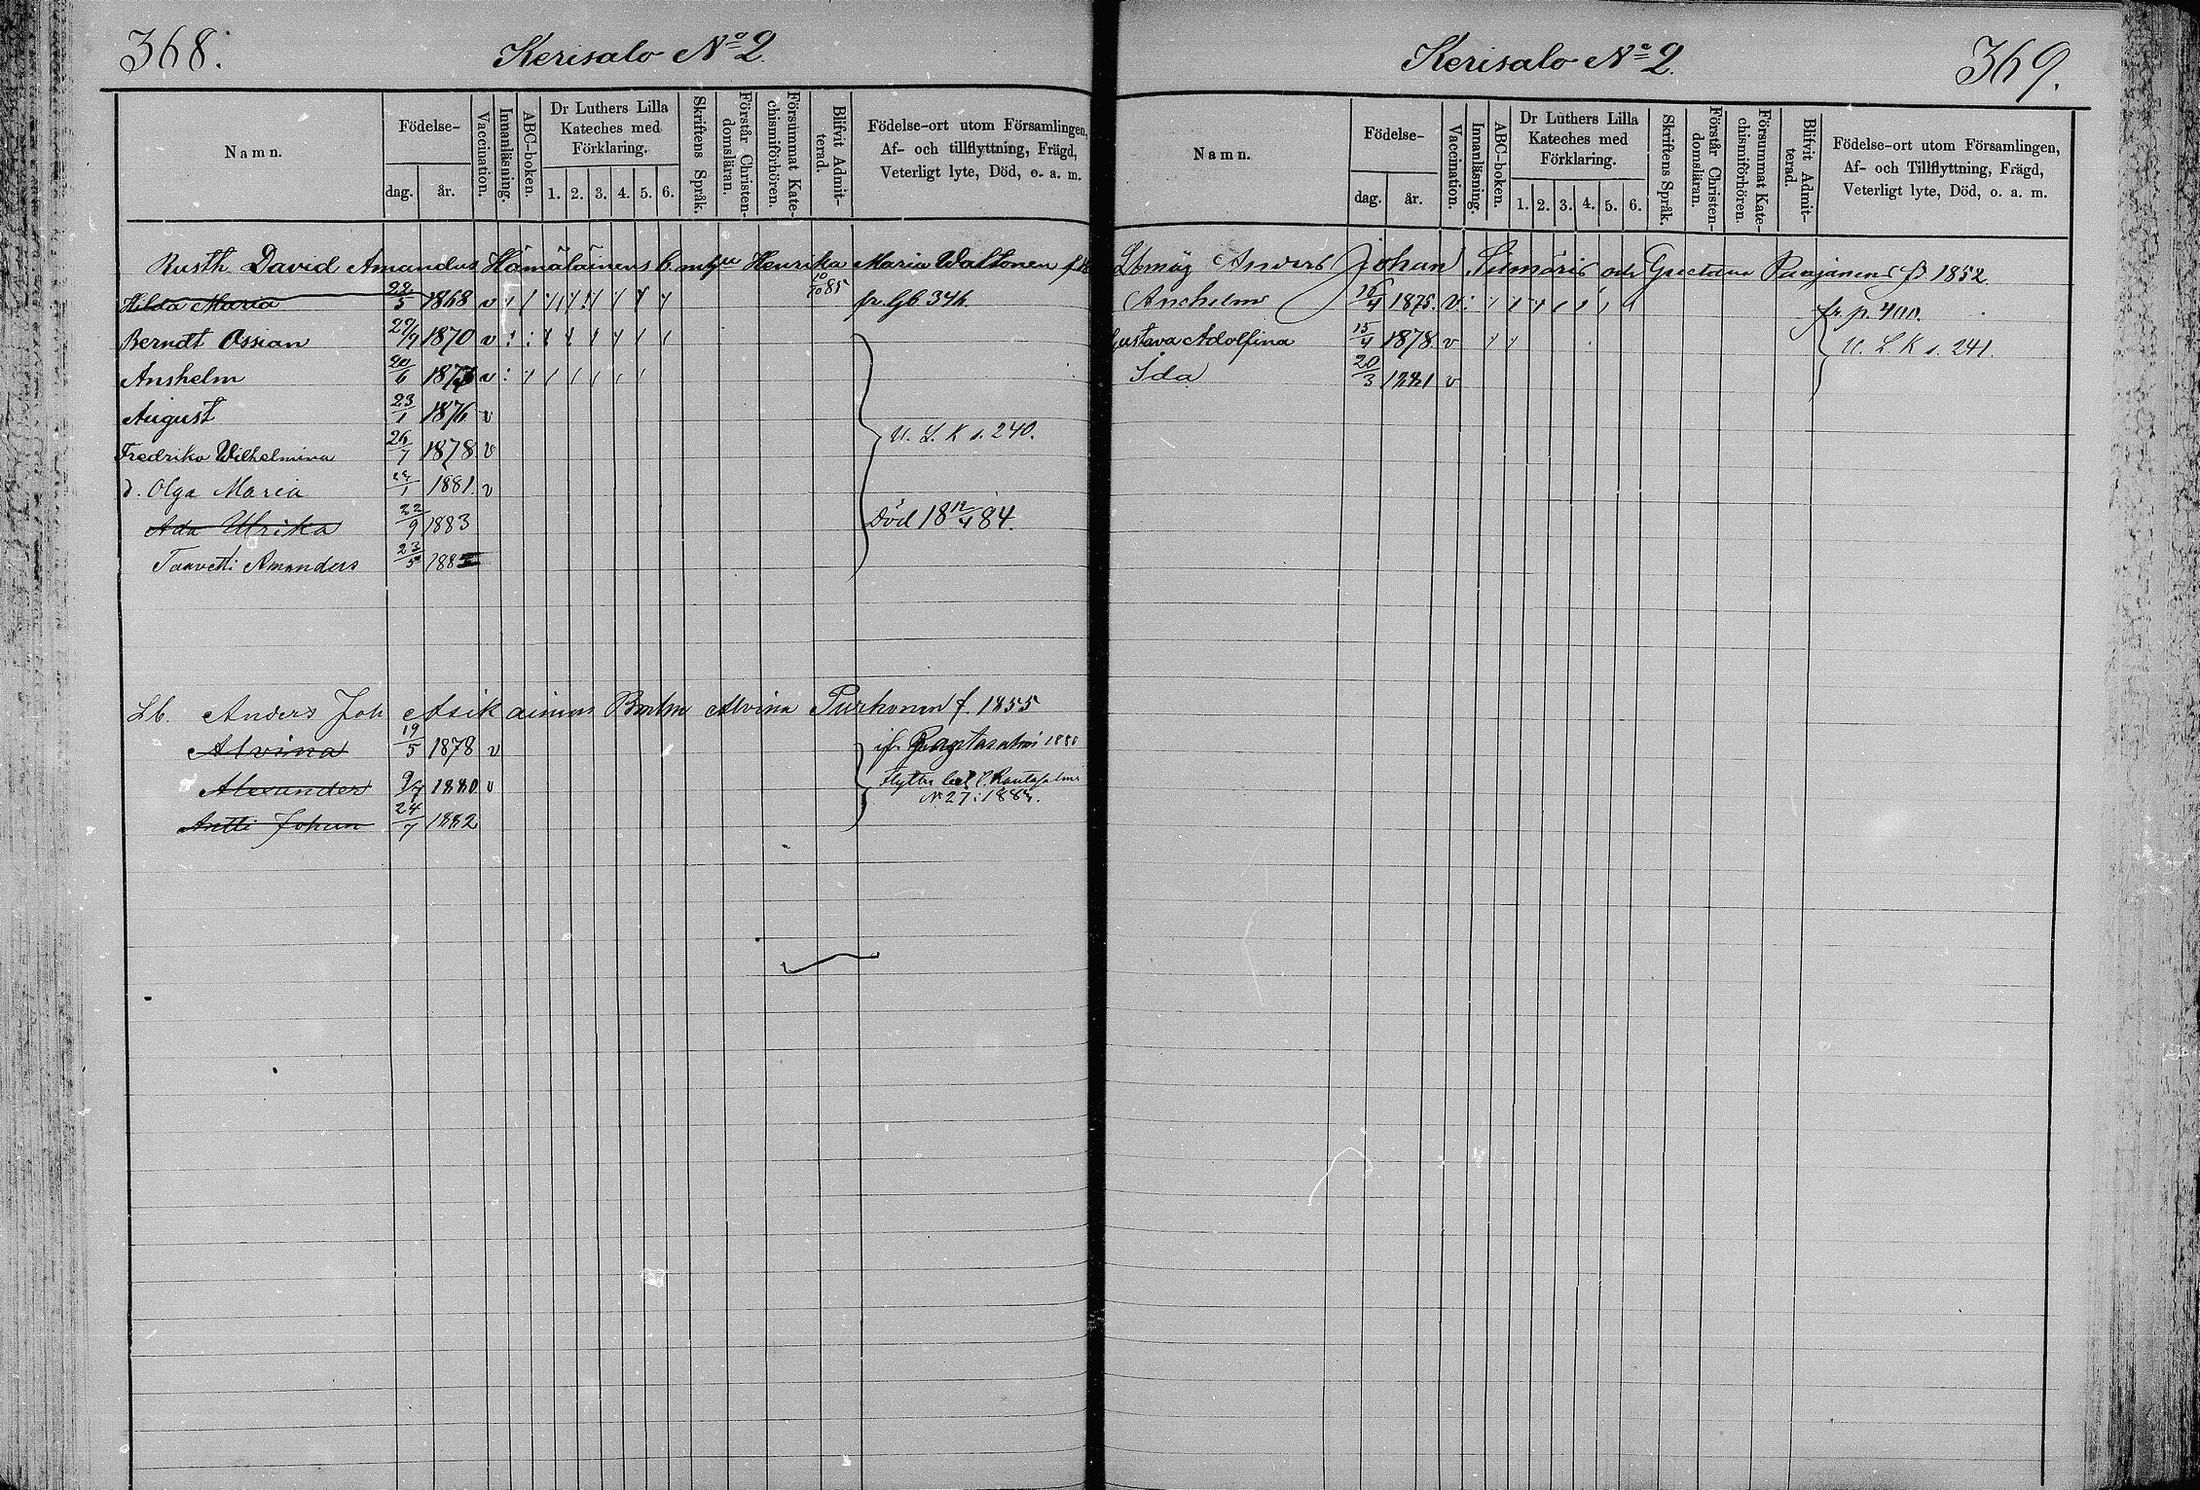 368.
Kerisalo No 2.
Namn.
Födelse-
dag.
år.
Vaccination.
Innanläsning.
ABC-boken.
Dr Luthers Lilla Kateches med Förklaring.
1. 2. 3. 4. 5. 6.
Skriftens Språk.
Förstår Christendomsläran.
Försummat Katechismiförhören.
Blifvit Admitterad.
Födelse-ort utom Församlingen,
Af- och tillflyttning, Frägd,
Veterligt lyte, Död, o. a. m.
Rusth David Amandus Hämäläinens Henrika Maria Waltonen
Hilda Maria 1868 v 10/10 85 fr. Gb 346.
Berndt Ossian 29/9 1870 v
Anshelm 20/6 v
August 23/1 1876 v
Fredrika Wilhelmina 26/7 1878 v U. L. K s. 240.
d. Olga Maria 1881. v
Ada Ulrika 22/9 1883 Död 18 12/4 84.
Taavetti Amanders 23/5
Lb. Anders Joh Asikainens Alvina Purhonen f. 1855
Alvina 19/5 1878 v
Alexander 9/7 1880 v
Antti Johan 24/7 1882
Kerisalo No 2.
369.
Namn.
Födelse-
dag.
år.
Vaccination.
Innanläsning.
ABC-boken.
Dr Luthers Lilla Kateches med Förklaring.
1. 2. 3. 4. 5. 6.
Skriftens Språk.
Förstår Christendomsläran.
Försummat Katechismiförhören.
Blifvit Admitterad.
Födelse-ort utom Församlingen,
Af- och Tillflyttning, Frägd,
Veterligt lyte, Död, o. a. m.
Anders Johan och Paajanens f. 1852.
Anshelm 1875. v fr. p. 400.
Gustava Adolfina 15/4 1878 v U. L. K s. 241.
Ida 20/3 1881 v